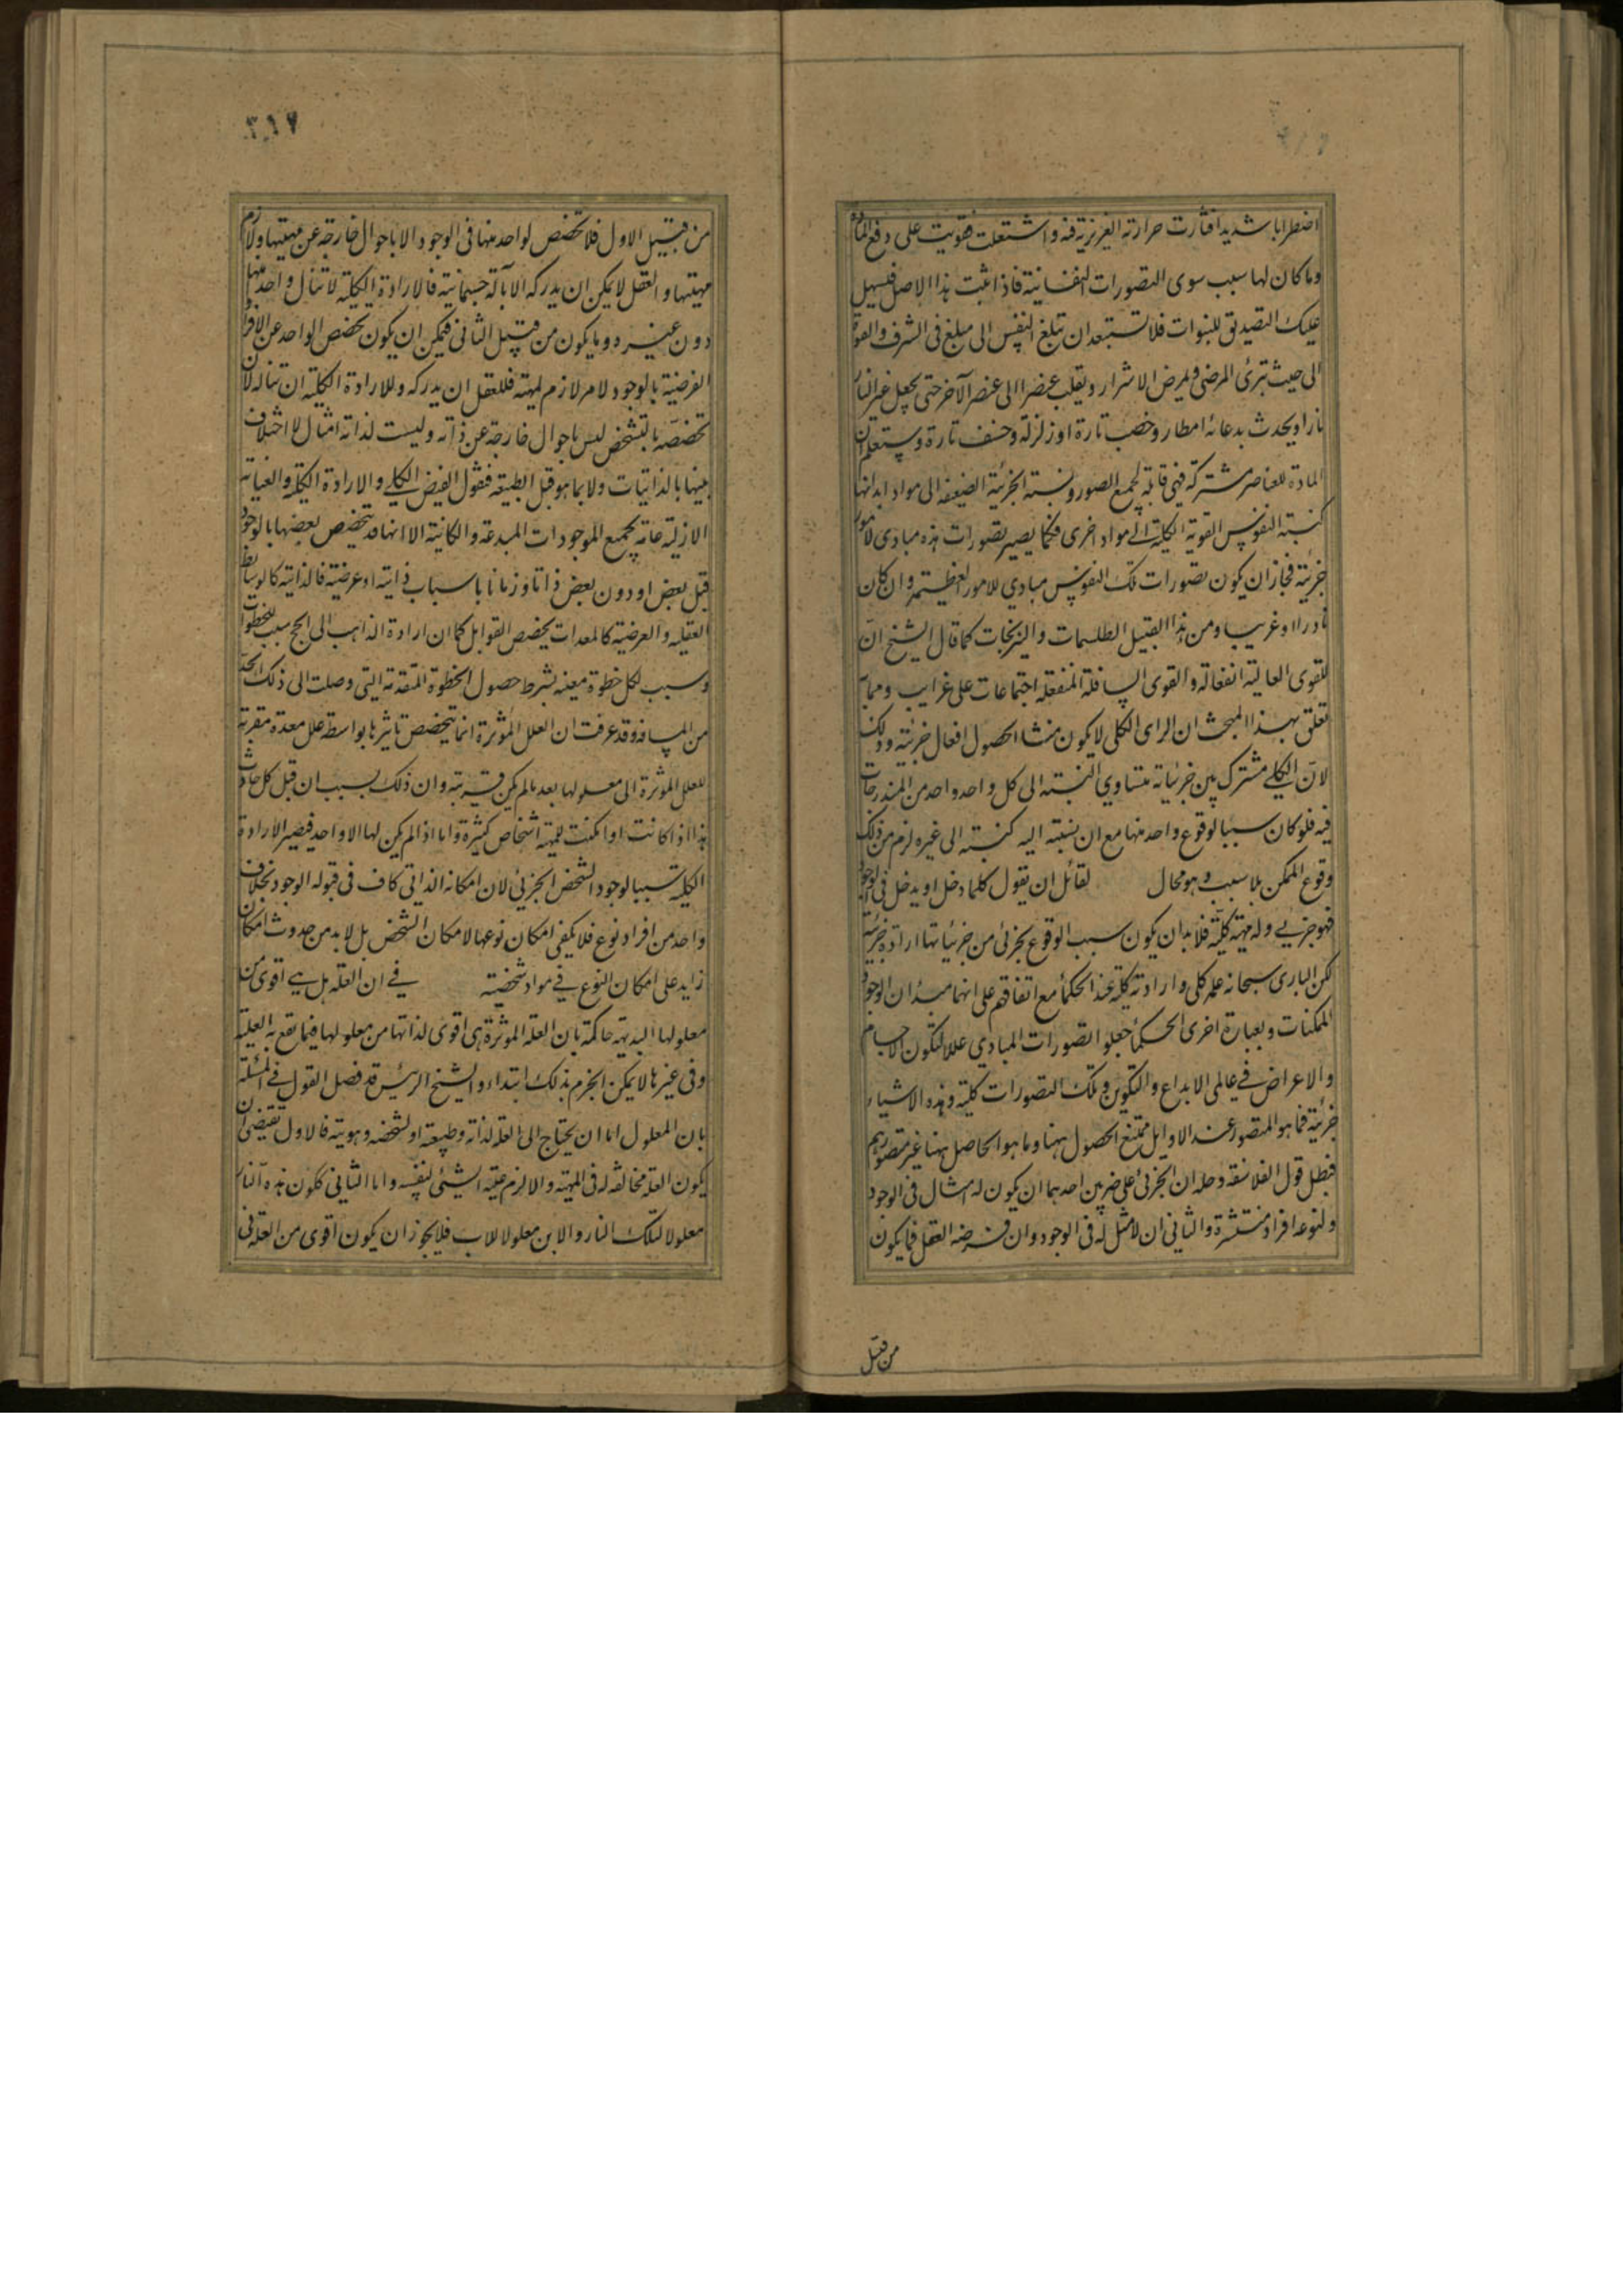 اضطرابا شديدا فثارت حرارته الغريزية فيه واشتعلت فقويت على دفع المادة
وما كان لها سبب سوى التصورات النفسانية فاذا ثبت هذا الاصل فليسهل
عليك التصديق للنبوات فلا تستبعد ان تبلغ النفس الى مبلغ فى الشرف والقوة
الى حيث تبرئ المرضى و يمرض الاشرار ويقلب عنصرا الى عنصر الآخر حتى يجعل غير النار
نارا ويحدث بدعائه امطار وخصب تارة او زلزلة وخسف تارة وستعلم ان
المادة للعناصر مشتركة فهى قابلة لجميع الصور ونسبته الجزئية الضعيفة الى مواد ابدانها
كنسبته النفوس القوية الكلية الى مواد اخرى فكما يصير تصورات هذه مبادى لامور
جزئية فجاز ان يكون تصورات تلك النفوس مبادي للامور العظيمة وان كان
نادرا وغريبا ومن هذا القبيل الطلسمات والنيرنجات كما قال الشيخ ان
للقوى العالية الفعالة والقوى السافلة المنفعلة اجتماعات على غرايب ومما
تعلق بهذا المبحث ان الراى الكلى لا يكون منشا لحصول افعال جزئية وذلك
لان الكلي مشترك بين جزئياته متساوي النسبته الى كل واحد واحد من المندرجات
فيه فلو كان سببا لوقوع واحد منها مع ان نسبته اليه كنسبته الى غيره لزم من ذلك
وقوع الممكن بلا سبب وهو محال لقائل ان يقول كلما دخل او يدخل فى الوجود
فهو جزيي وله مهية كلية فلابد ان يكون سبب الوقوع بجزئى من جزئياتها ارادة جزئية
لكن البارى سبحانه علمه كلى وارادته كلية عند الحكمأ مع اتفاقهم على انهما مبدان لوجود
الممكنات وبعبارة اخرى الحكمأ جعلوا تصورات المبادي عللا لتكون الاجسام
والاعراض في عالمى الابداع والتكوين وتلك التصورات كلية وهذه الاشياء
جزئية فما هو المتصور عند الاوايل ممتنع الحصول هنا وما هو الحاصل هنا غير متصورهم
فبطل قول الفلاسفة وحله ان الجزئى على ضربين احدهما ان يكون له امثال فى الوجود
ولنوعه افراد منتشرة والثانى ان لا مثل له فى الوجود وان فرضه العقل فما يكون
من قبيل
٣١٧
من قبيل الاول فلا تخصص لواحد منها فى الوجود الا باحوال خارجة عن مهيتها ولازم
مهيتها والعقل لا يمكن ان يدركه الا بآلة جسمانية فالارادة الكلية لا تنال واحد منها
دون غيره وما يكون من قبيل الثانى فيمكن ان يكون تخصص الواحد عن الافراد
الفرضية بالوجود لامر لازم لمهيته فللعقل ان يدركه وللارادة الكلية ان تناله لان
تخصصه بالتشخص ليس باحوال خارجة عن ذاته وليست لذاته امثال لا اختلاف
بينها بالذاتيات ولا بما هو قبل الطبيعة فنقول الفيض الكلي والارادة الكلية والعناية
الازلية عامة بجميع الموجودات المبدعة والكائنة الا انها قد يتخصص بعضها بالوجود
قبل بعض او دون بعض ذاتا وزمانا باسباب ذاتية او عرضية فالذاتية كالوسايط
العقلية والعرضية كالمعدات يخصص القوابل كما ان ارادة الذاهب الى الحج سبب لخطوات
وسبب لكل خطوة معينه بشرط حصول الخطوة المتقدمة التى وصلت الى ذلك الحد
من المسافة وقد عرفت ان العلل المؤثرة انما يتخصص تاثيرها بواسطة علل معدة مقربة
للعلل المؤثرة الى معلولها بعد ما لم يكن قريبة وان ذلك بسبب ان قبل كل حادث
هذا اذا كانت او امكنت للمهية اشخاص كثيرة واما اذا لم يكن لها الا واحد فيصير الارادة
الكلية سببا لوجود الشخص الجزئى لان امكانه الذاتى كاف فى قبوله الوجود بخلاف
واحد من افراد نوع فلا يكفى امكان نوعها لامكان الشخص بل لابد من حدوث امكان
زايد على امكان النوع في مواد شخصية في ان العلة هل هي اقوى من
معلولها البديهة حاكمة بان العلة المؤثرة هى اقوى لذاتها من معلولها فيما يقع به العلية
وفى غيرها لا يمكن الجزم بذلك ابتداء والشيخ الرئيس قد فصل القول في المسئلة
بان المعلول اما ان يحتاج الى العلة لذاته وطبيعته او لشخصه وهويته فالاول يقتضى ان
يكون العلة مخالفة له فى المهية والا لزم علية الشئى لنفسه واما الثانى ككون هذه النار
معلولا لتلك النار والابن معلولا للاب فلا يجوز ان يكون اقوى من العلة فى